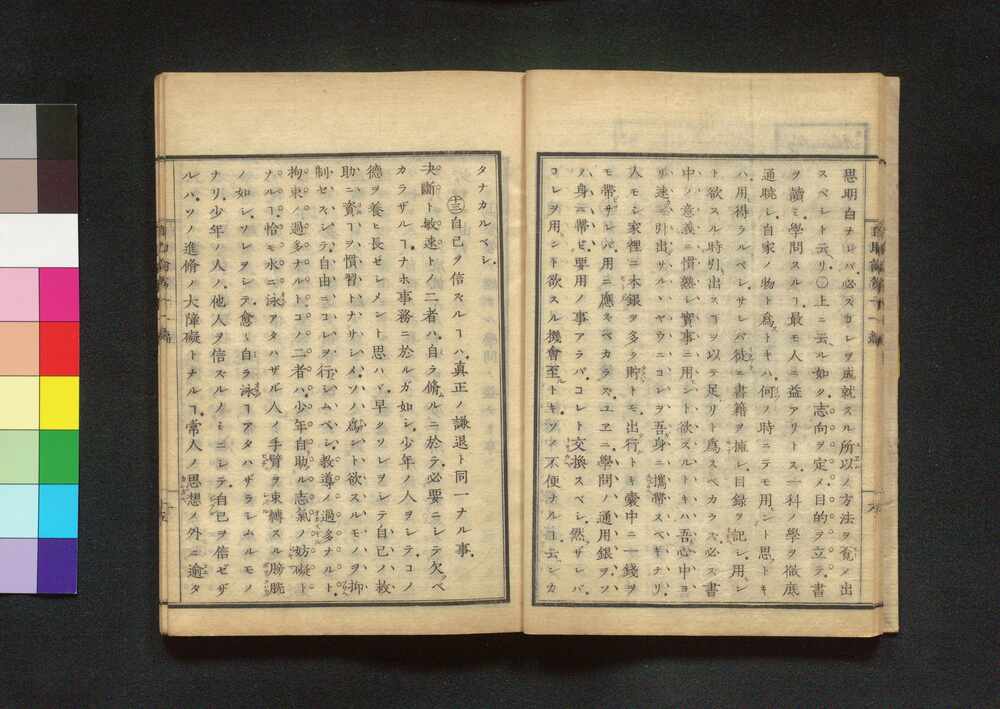 思明白ナレバ必ズカレヲ成就スル所以ノ方法ヲ覓メ出
スベシト云リ〇上ニ云ル如ク志向ヲ定メ目的ヲ立テ書
ヲ讀ミ學問スルヿ最モ人ニ益アリトス一科ノ學ヲ徹底
通曉シ自家ノ物ト為トキハ何ノ時ニテモ用ント思トキ
ハ用得ラルベシサレバ徒ニ書籍ヲ擁シ目録ヲ記シ用ン
ト欲スル時引出スヿヲ以テ足リト為スベカラズ必ズ書
中ノ意義ニ慣熟シ實事ニ用ント欲スルトキハ吾心中ヨ
リ速ニ引出サルヽヤウニコレヲ吾身ニ攜帶スベキナリ
人モシ家裡ニ木銀ヲ多ク貯トモ出行トキ囊中ニ一錢ヲ
モ帶サレバ用ニ應ズベカラズユヱニ學問ノ通用銀ヲツ
ノ身ニ帶ビ要用ノ事アラバコレト交換スベシ然ザレバ
コレヲ用ント欲スル機會至トキソノ不便ナルヿ云シカ
タナカルベシ
十三 自己ヲ信ズルヿハ真正ノ謙退ト同一ナル事
決斷ト敏速トノ二者ハ自ラ脩ルニ於テ必要ニシテ欠ベ
カラザルヿナホ事務ニ於ルガ如シ少年ノ人ヲシテコノ
德ヲ養ヒ長ゼシメント思ハヾ早クソレヲシテ自己ノ救
助ニ資ヿヲ慣習トナサシメソノ為ント欲スルモノヲ抑
制セズシテ自由ニコレヲ行シムベシ教導ノ過多ナルト
拘束ノ過多ナルトコノ二者ハ少年自助ル志氣ノ妨礙ト
ナルヿ恰モ水ニ泳アタハザル人ノ手臂ヲ束縛スル膀胱
ノ如シソレヲシテ愈〻自ラ泳ヿアタハザラシムルモノ
ナリ少年ノ人ノ他人ヲ信ズルノミニシテ自己ヲ信ゼザ
ルハソノ進脩ノ大障礙トナルヿ常人ノ思想ノ外ニ逾タ